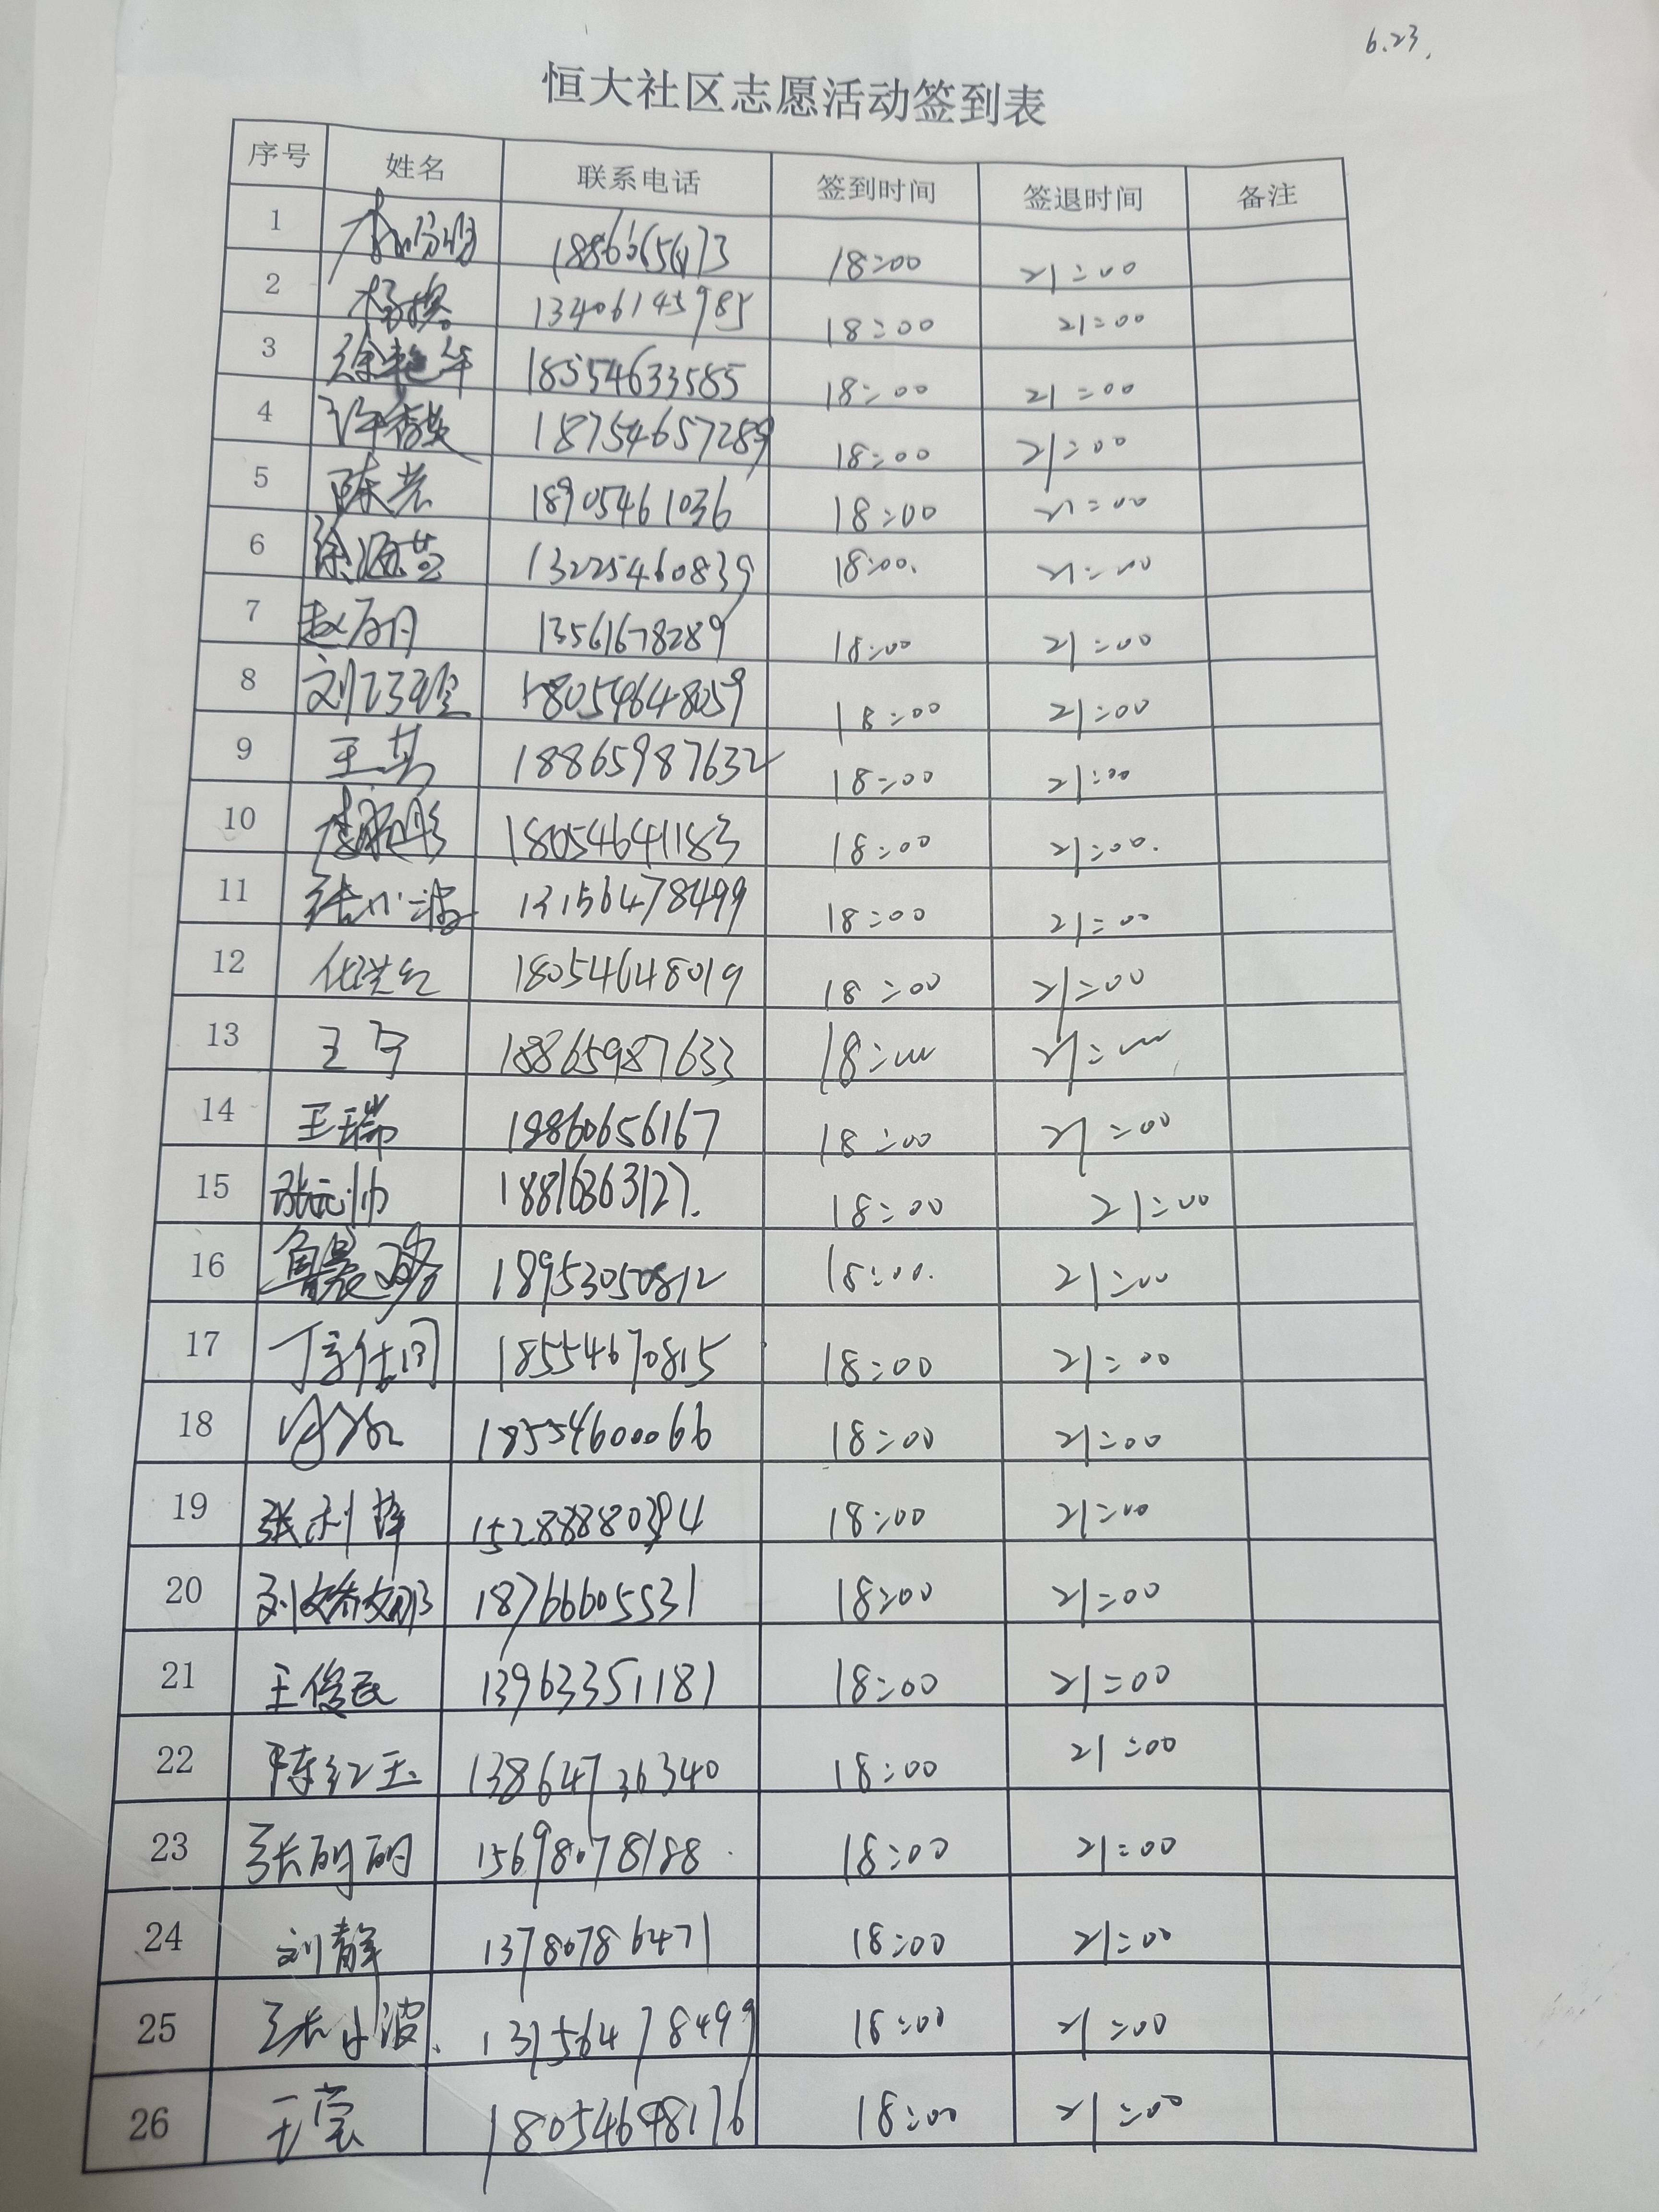 6.23.
恒大社区志愿活动签到表
序号 姓名 联系电话 签到时间 签退时间 备注
1 18:00 21:00
2 杨 13406145985 18:00 21:00
3 徐艳华 18554633585 18:00 21:00
4 许秀英 18754657289 18:00 21:00
5 陈芸 18905461036 18:00 21:00
6 徐 13225460839 18:00. 21:00
7 赵 13561678289 18:00 21:00
8 刘 18054648059 18:00 21:00
9 王其 18865987632 18:00 21:00
10 李 18054641183 18:00 21:00.
11 张小波 13156478499 18:00 21:00
12 18054648019 18:00 21:00
13 王宁 18865987633 18:00 21:00
14 王瑞 18860656167 18:00 21:00
15 张元帅 18:00 21:00
16 18953050812 18:00. 21:00
17 丁 18554670815 18:00 21:00
18 18554600066 18:00 21:00
19 张利 18:00 21:00
20 刘娇娜 18766605531 18:00 21:00
21 王俊民 13963351181 18:00 21:00
22 陈红玉 13864736340 18:00 21:00
23 张明明 15698078188 18:00 21:00
24 刘静 13780786471 18:00 21:00
25 张小波. 13156478499 18:00 21:00
26 王莹 18054648176 18:00 21:00